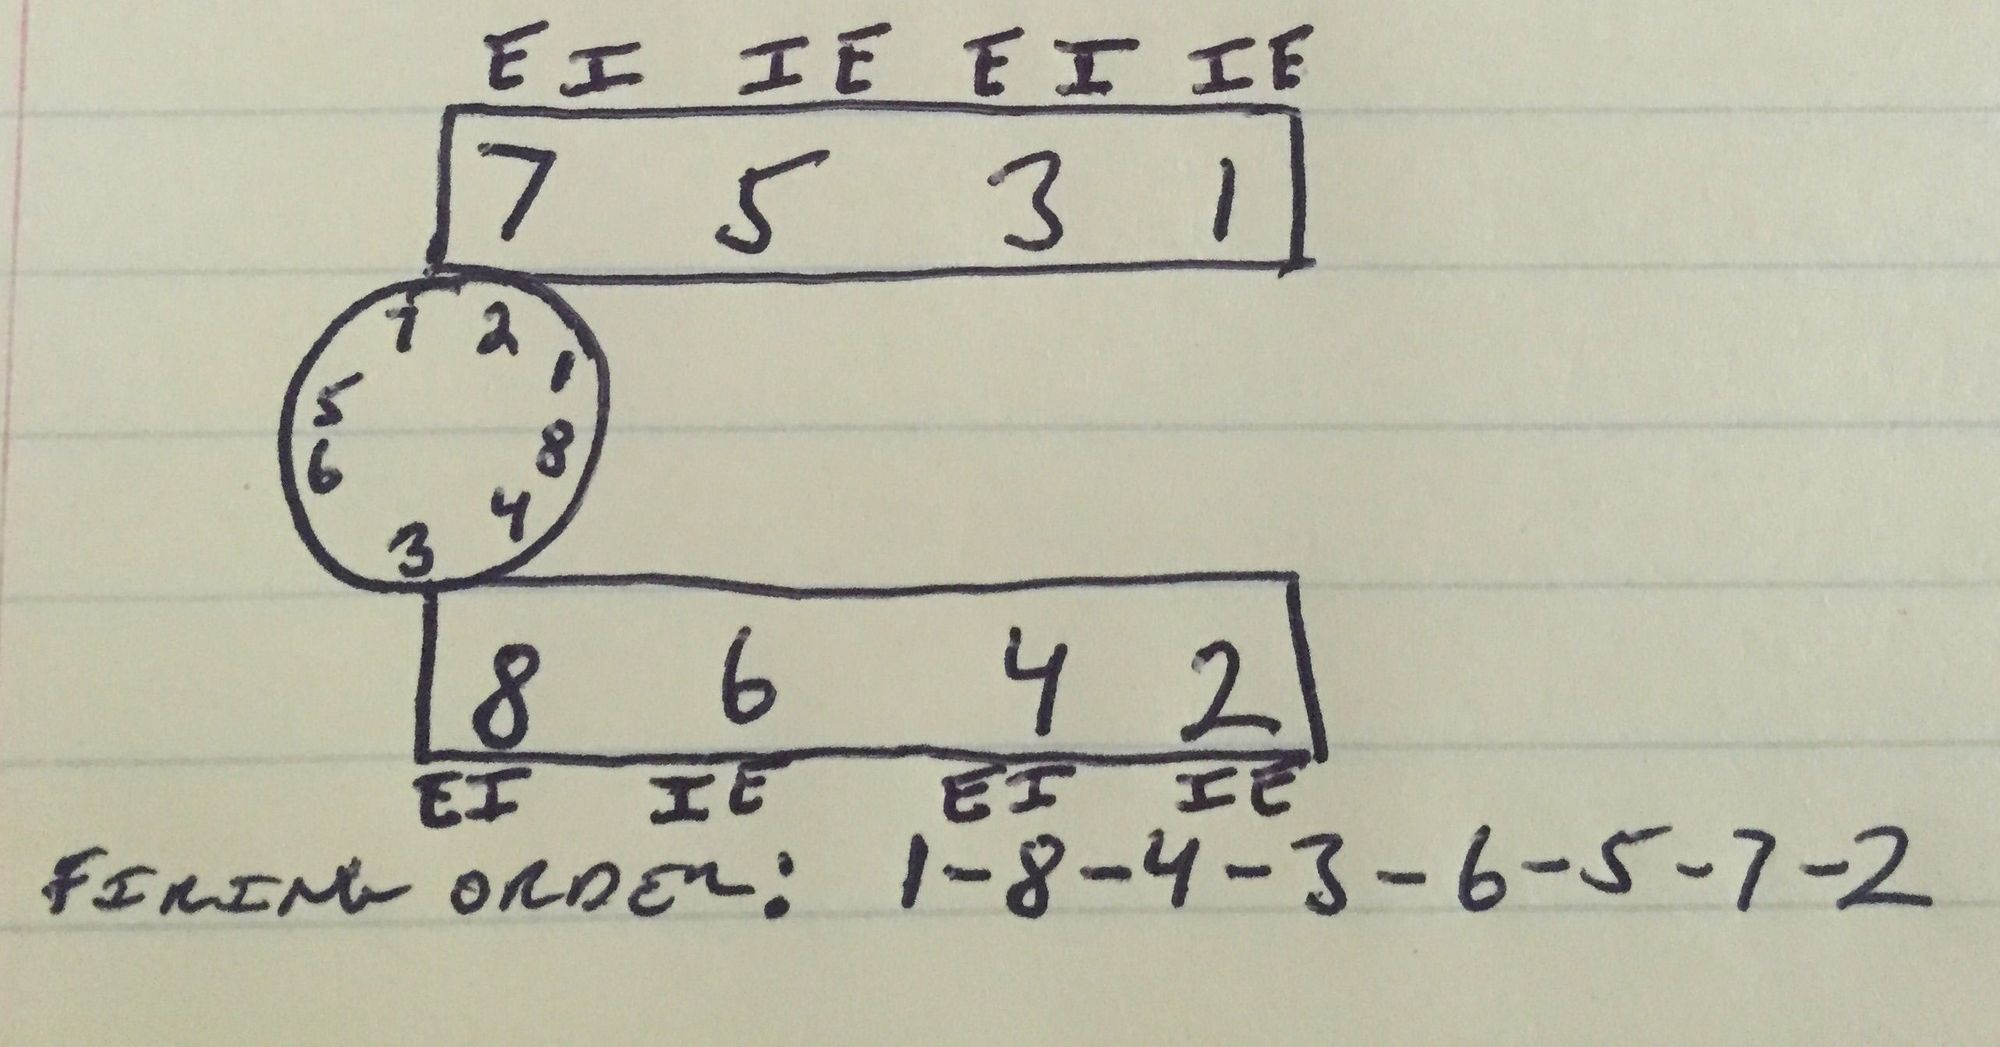 E I I E E I I E
7 5 3 1
7 2
1
5
8
6
4
3
8 6 4 2
EI IE EI IE
FIRING ORDER: 1-8-4-3-6-5-7-2